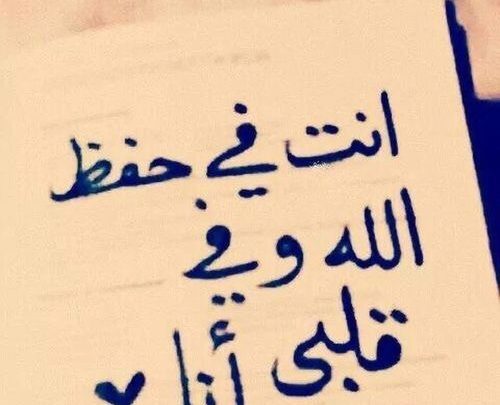 انت في حفظ
الله و في
قلبي أنا